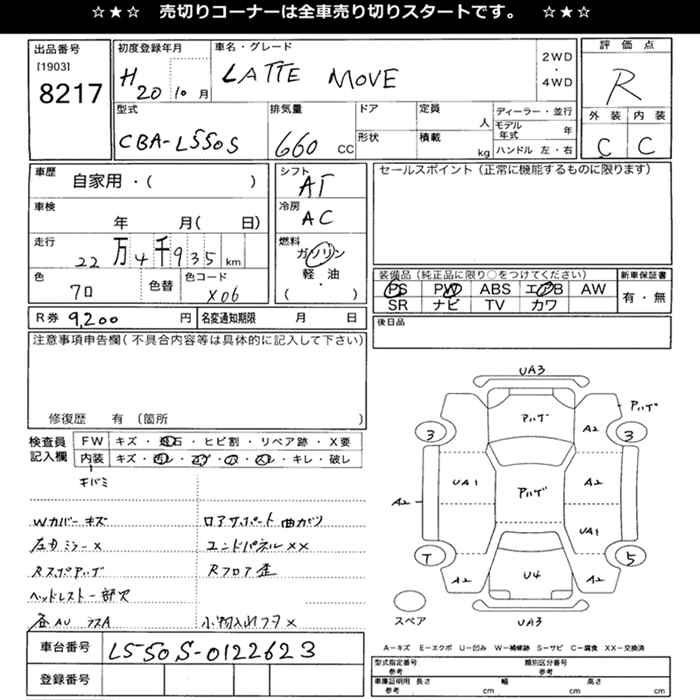 ☆★☆ 売切りコーナーは全車売り切りスタートです。 ☆★☆
出品番号
[1903]
8217
初度登録年月
H20 10月
車名・グレード
LATTE MOVE
2WD
・
4WD
評価点
R
型式
CBA-L550S
排気量
660 CC
ドア
形状
定員
人
積載
kg
ディーラー・並行
モデル年式 年
ハンドル 左・右
外装 内装
C C
車歴
自家用・( )
車検
年 月( 日)
走行
22万4千935 km
色
クロ
色替
色コード
X06
シフト
AT
冷房
AC
燃料
ガソリン
軽・油
( )
セールスポイント(正常に機能するものに限ります)
装備品(純正品に限り○をつけてください)
PS PW ABS エアB AW
SR ナビ TV カワ
新車保証書
有・無
R券 9,200 円
名変通知期限 月 日
後日品
注意事項申告欄(不具合内容等は具体的に記入して下さい)
修復歴 有(箇所
検査員
記入欄
FW キズ・飛石・ヒビ割・リペア跡・X要
内装 キズ・汚レ・コゲ・穴・スレ・キレ・破レ
キバミ
Wカバーキズ
ロアサポート曲ガリ
左右ミラーX
エンドパネルXX
Rスポアルゲ
Rフロア歪
ヘッドレスト一部欠
小物入れフタX
UA3
アルゲ
アルゲ
A2
3
3
UA1
アルゲ
A2
A2
UA1
T
5
A2
U4
A2
UA3
スペア
A-キズ E-エクボ U-凹み W-補修跡 S-サビ C-腐食 XX-交換済
車台番号
L550S-0122623
登録番号
型式指定番号
参考
類別区分番号
参考
車庫証明用 長さ
参考 cm
幅
cm
高さ
cm